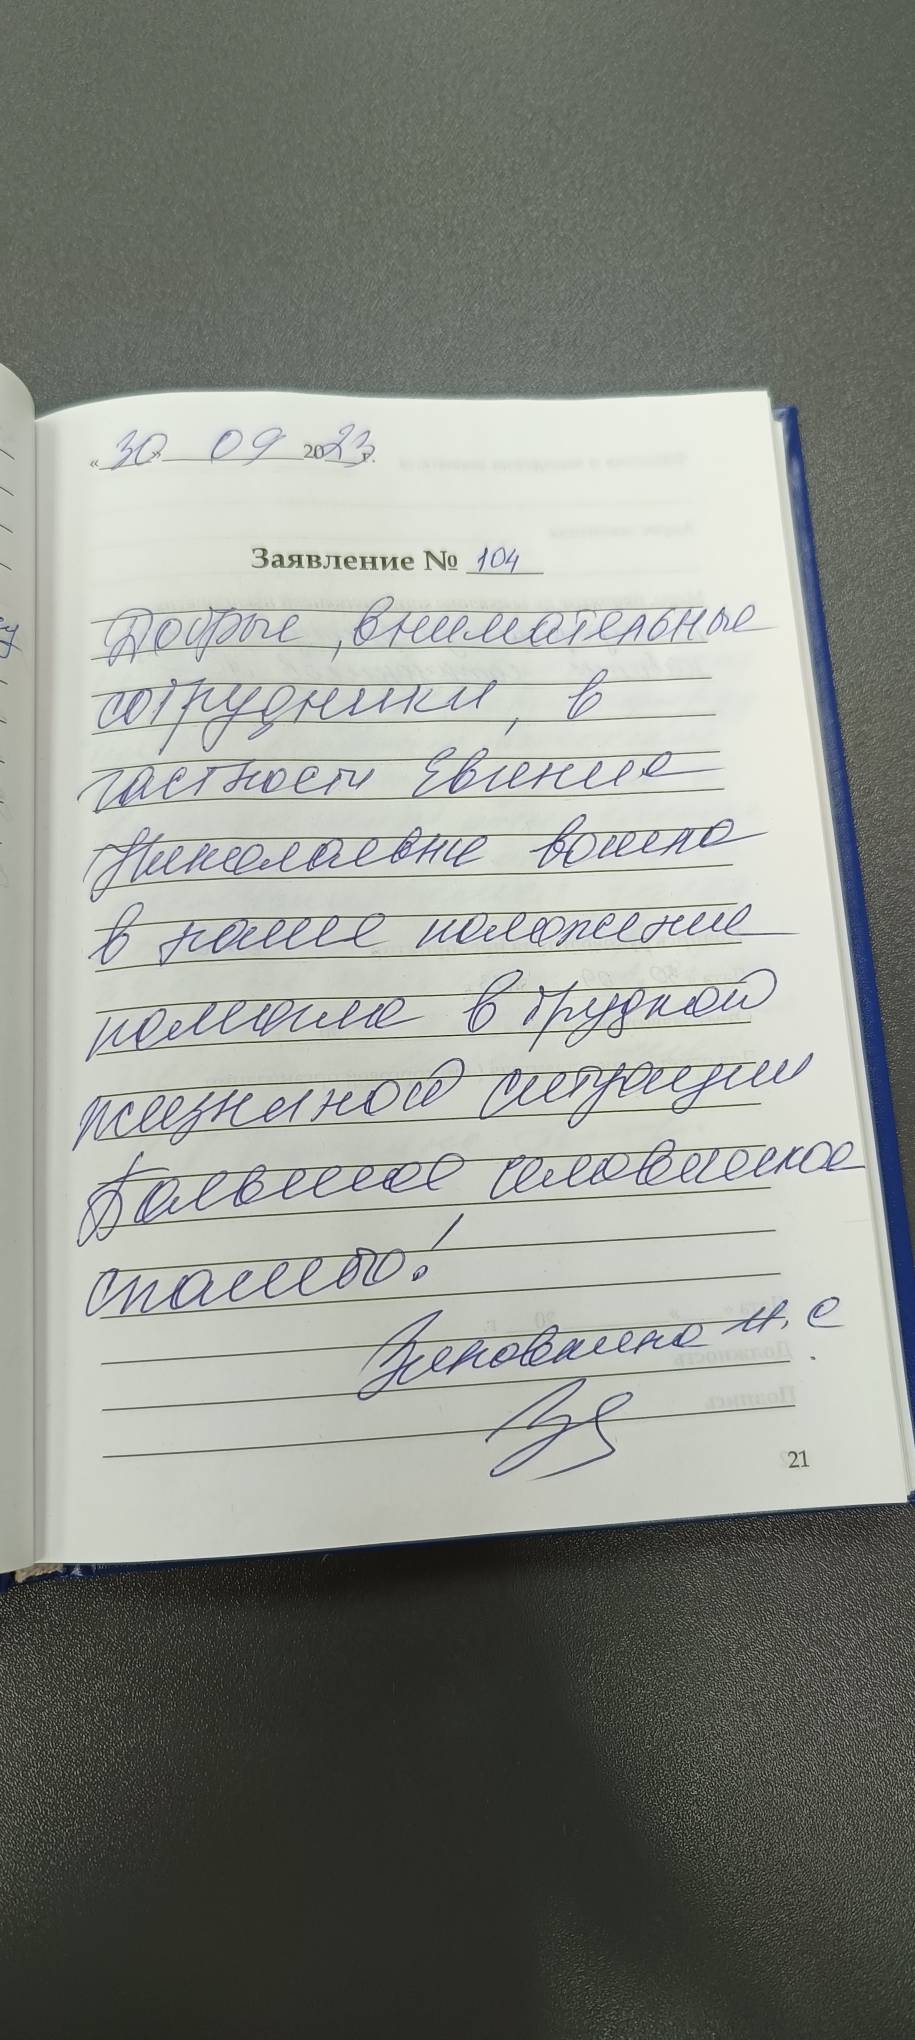 « 30 » 09 2023 г.
Заявление № 104
Добрые, внимательные
сотрудники, в
частности Евгение
Николаевне вошла
в наше положение
помогла в трудной
жизненной ситуации
Большое человеческое
спасибо!
И. С.
21